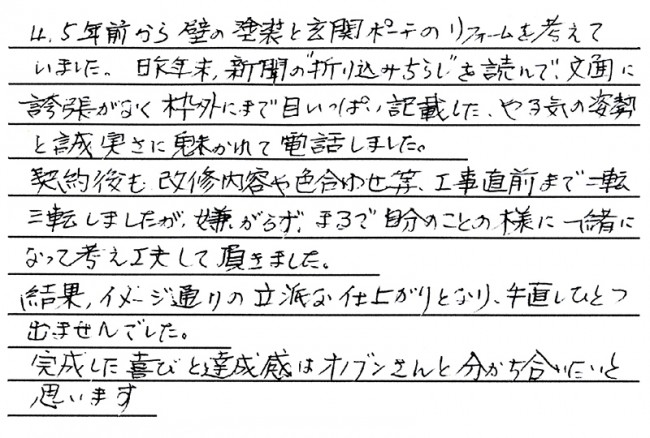 4.5年前から壁の塗装と玄関ポーチのリフォームを考えて
いました。昨年末,新聞の"折り込みちらし"を読んで,文面に
誇張がなく枠外にまで目いっぱい記載した、やる気の姿勢
と誠実さに魅かれて電話しました。
契約後も改修内容や色合わせ等、工事直前まで二転
三転しましたが、嫌がらず,まるで自分のことの様に一緒に
なって考え工夫して頂きました。
結果,イメージ通りの立派な仕上がりとなり、手直しひとつ
出ませんでした。
完成した喜びと達成感はオノブンさんと分かち合いたいと
思います